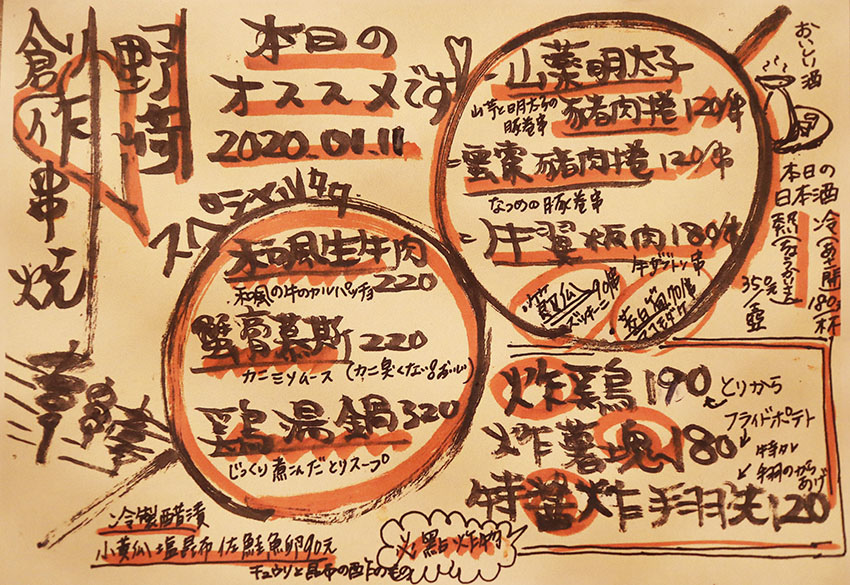 創作串燒
野崎
本日の
オススメです
2020.01.11
山藥明太子
山芋と明太子の
豚巻串
豬肉捲 120/串
蜜棗豬肉捲 120/串
なつめの豚巻串
牛翼板肉 180/串
牛ザブトン串
黄瓜 90/串
ズッキーニ
90/串
おいしい酒
本日の
日本酒
冷
180元/杯
熱
350元/壺
スペシャル
和風生牛肉 220
和風の牛のカルパッチョ
蟹膏慕斯 220
カニミソムース (カニ臭くない。おいしい)
鶏湯鍋 320
じっくり煮こんだとりスープ
炸鶏 190
とりから
炸薯塊 180
フライドポテト
特醬炸手羽先 120
手羽のからあげ
必點炸物
冷製醋漬
小黄瓜塩昆布佐鮭魚卵 90元
キュウリと昆布の酢のもの